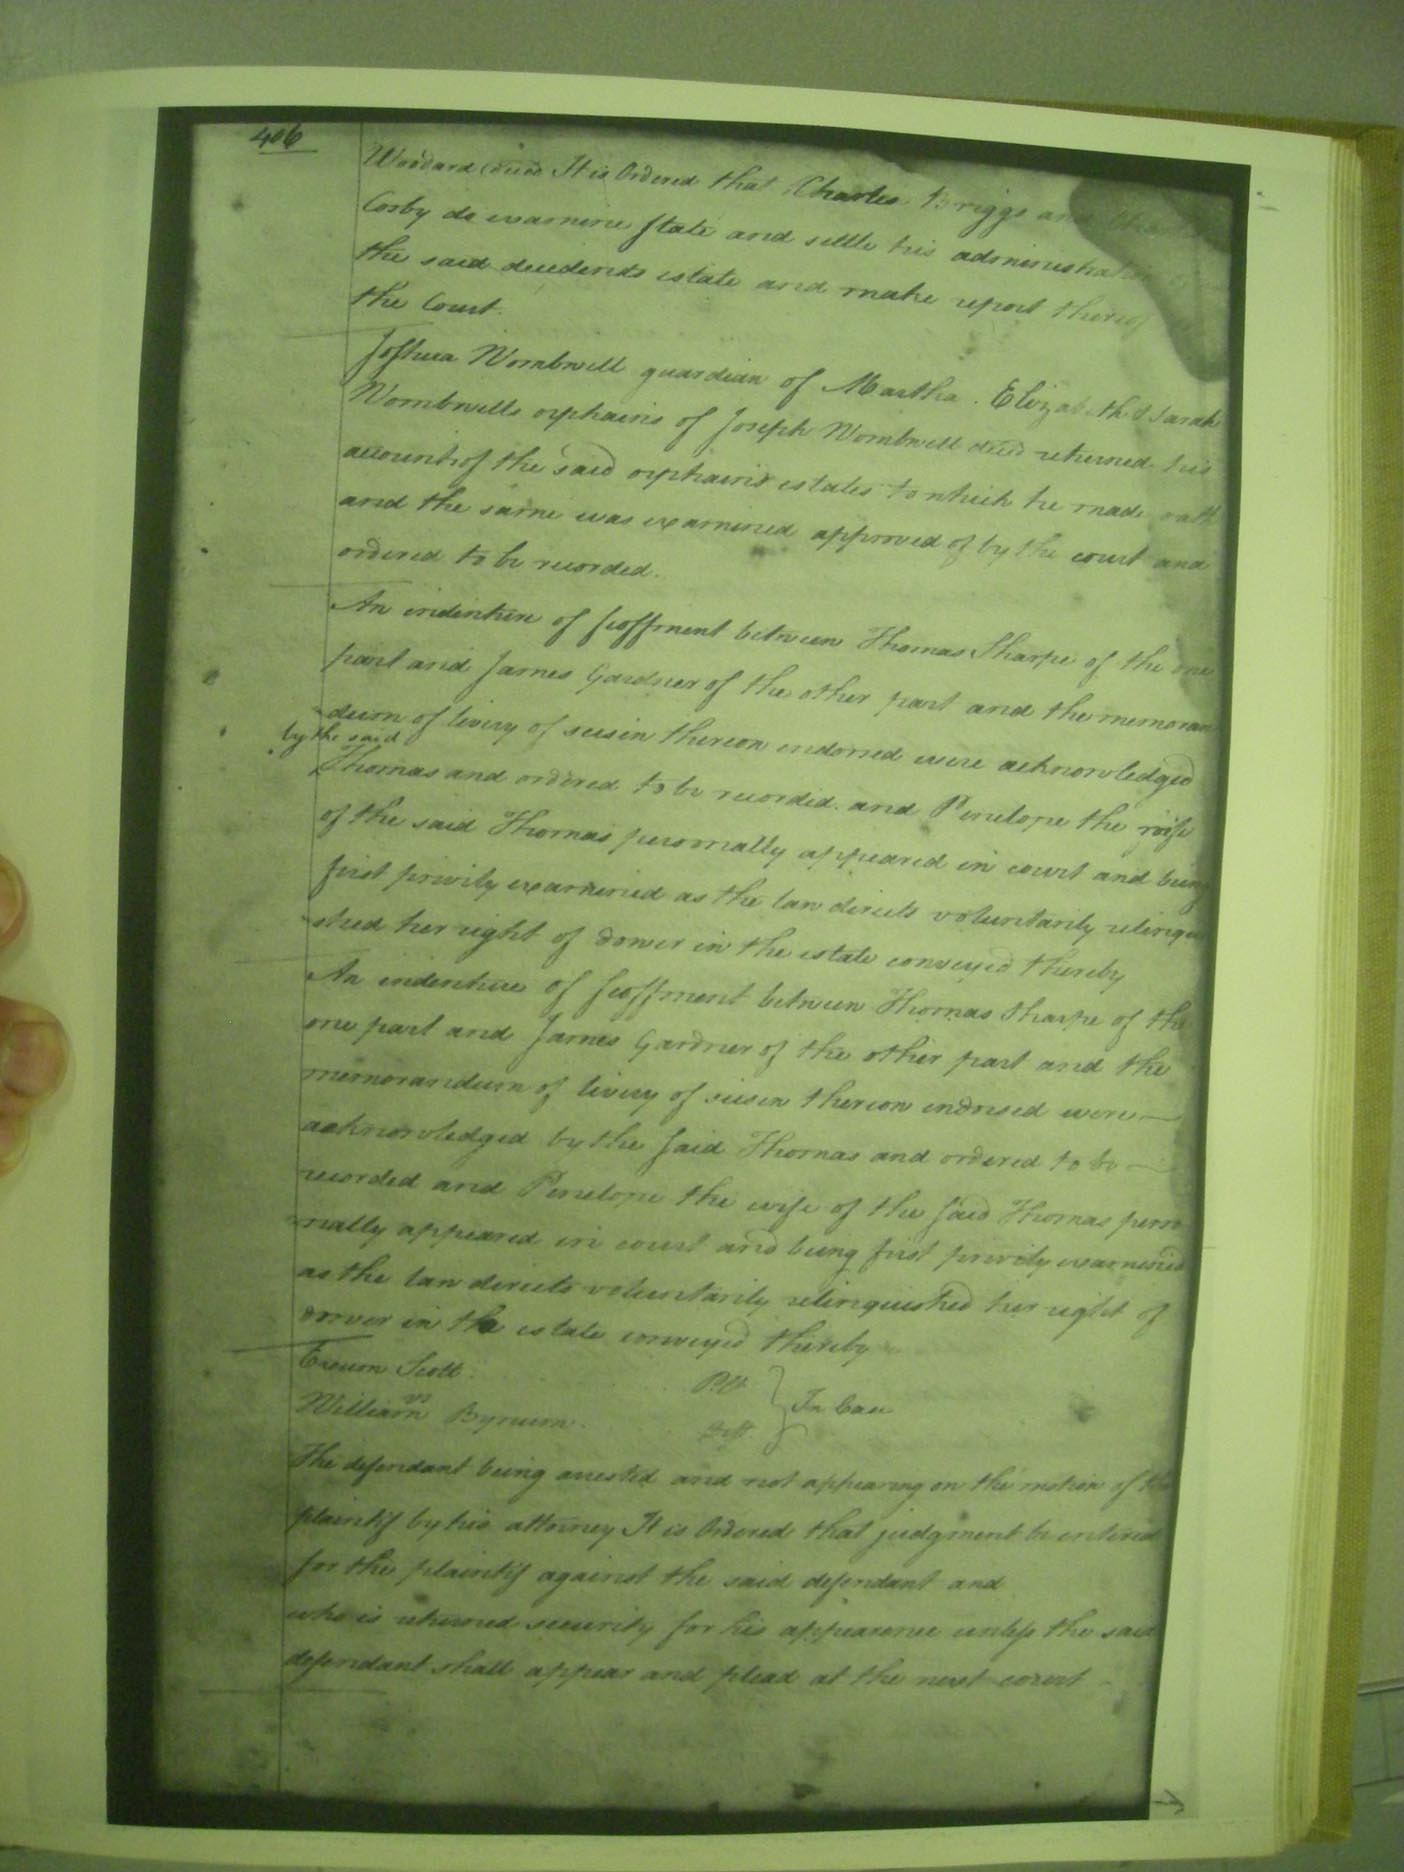 406
Woodard decd It is Ordered that Charles Briggs and
Corby do examine state and settle his administration
the said decedents estate and make report thereof
the Court.
Joshua Wombwell guardian of Martha. Elizabeth & Sarah
Wombwells orphains of Joseph Wombwell decd returned his
account of the said orphains estates to which he made oath
and the same was examined approved of by the court and
ordered to be recorded.
An indenture of feoffment between Thomas Sharpe of the one
part and James Gardner of the other part and the memoran
dum of livery of seisen thereon endorsed were acknowledged
by the said
Thomas and ordered to be recorded. and Penelope the wife
of the said Thomas personally appeared in court and being
first privily examined as the law directs voluntarily relinqui
shed her right of dower in the estate conveyed thereby
An indenture of feoffment between Thomas Sharpe of the
one part and James Gardner of the other part and the
memorandum of livery of seisen thereon endorsed were
acknowledged by the said Thomas and ordered to be
recorded and Penelope the wife of the said Thomas perso
nally appeared in court and being first privily examined
as the law directs voluntarily relinquished her right of
dower in the estate conveyed thereby
Exum Scott Plt
vs } In Case
William Bynum. Deft.
The defendant being arrested and not appearing on the motion of the
plaintif by his attorney It is Ordered that judgment be entered
for the plaintif against the said defendant and
who is returned security for his appearance unless the said
defendant shall appear and plead at the next court